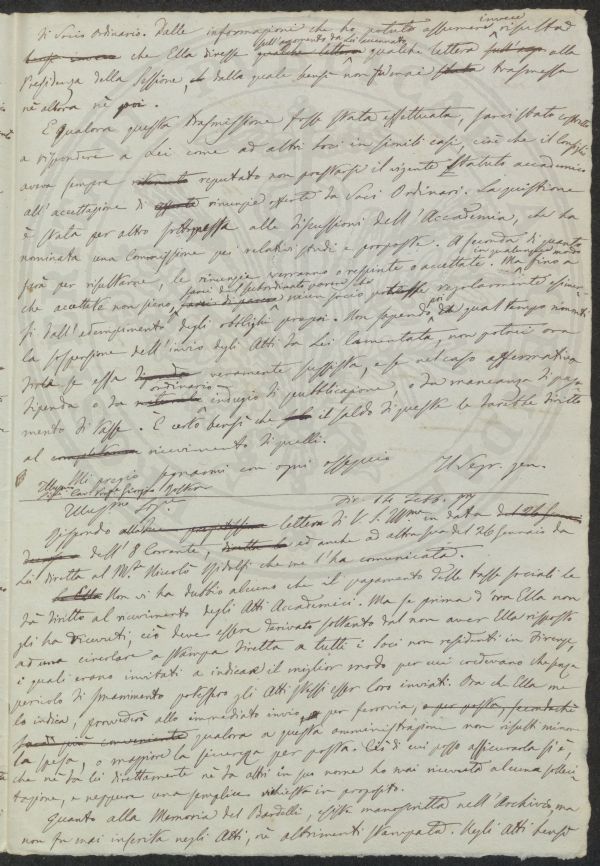 di Socio Ordinario. Dalle informazioni che ho potuto assumere invece risulta
che Ella diresse sull'argomento da Lei accennato qualche lettera alla
Presidenza della Sezione, dalla quale bensì non fu mai trasmessa
nè allora nè poi.
E qualora questa trasmissione fosse stata effettuata, sarei stato costretto
a rispondere a Lei come ad altri Soci in simili casi, cioè che il Consiglio
aveva sempre reputato non prestarsi il vigente Statuto accademico
all'accettazione di rinunzie offerte da Soci Ordinari. La quistione
è stata per altro sottomessa alle discussioni dell'Accademia, che ha
nominata una Commissione pei relativi studi e proposte. A seconda di quanto
sarà per risultarne, le rinunzie verranno o respinte o accettate. Ma fino a
che accettate non sieno, niun socio potrebbe regolarmente esimer-
si dall'adempimento degli obblighi propri. Non sapendo poi da qual tempo rimonti
la sospensione dell'invio degli Atti da Lei lamentata, non potrei ora
dirle se essa veramente sussista, e se nel caso affermativo
dipenda o da ordinario indugio di pubblicazione, o da mancanza di paga-
mento di Tasse. È certo bensì che il saldo di queste le darebbe diritto
al ricevimento di quelli.
Mi pregio segnarmi con ogni ossequio Il Segr. gen.
Illmo
Sig. Cav. Prof. Giorgio
Illmo Sig. Die 14 Febb.
Rispondo lettera di V. S. Illma in data
dell'8 Corrente, ed anche ad altra sua del 26 Gennaio da
Lei diretta al Mse Niccolò Ridolfi che me l'ha comunicata.
Non vi ha dubbio alcuno che il pagamento delle tasse sociali le
dà diritto al ricevimento degli Atti Accademici. Ma se prima d'ora Ella non
gli ha ricevuti, ciò deve essere derivato soltanto dal non aver Ella risposto
ad una circolare a stampa diretta a tutti i Soci non residenti in Firenze,
i quali erano invitati a indicare il miglior modo per cui credevano che senza
pericolo di smarrimento potessero gli Atti stessi esser loro inviati. Ora che Ella me
lo indica, provvederò allo immediato invio per ferrovia,
qualora a questa amministrazione non risulti minore
la spesa, o maggiore la sicurezza per posta. Ciò di cui posso assicurarla si è,
che nè da lei direttamente nè da altri in suo nome ho mai ricevuto alcuna solleci-
tazione, e neppure una semplice richiesta in proposito.
Quanto alla Memoria del Bardelli, esiste manoscritta nell'Archivio, ma
non fu mai inserita negli Atti, nè altrimenti stampata. Negli Atti bensì